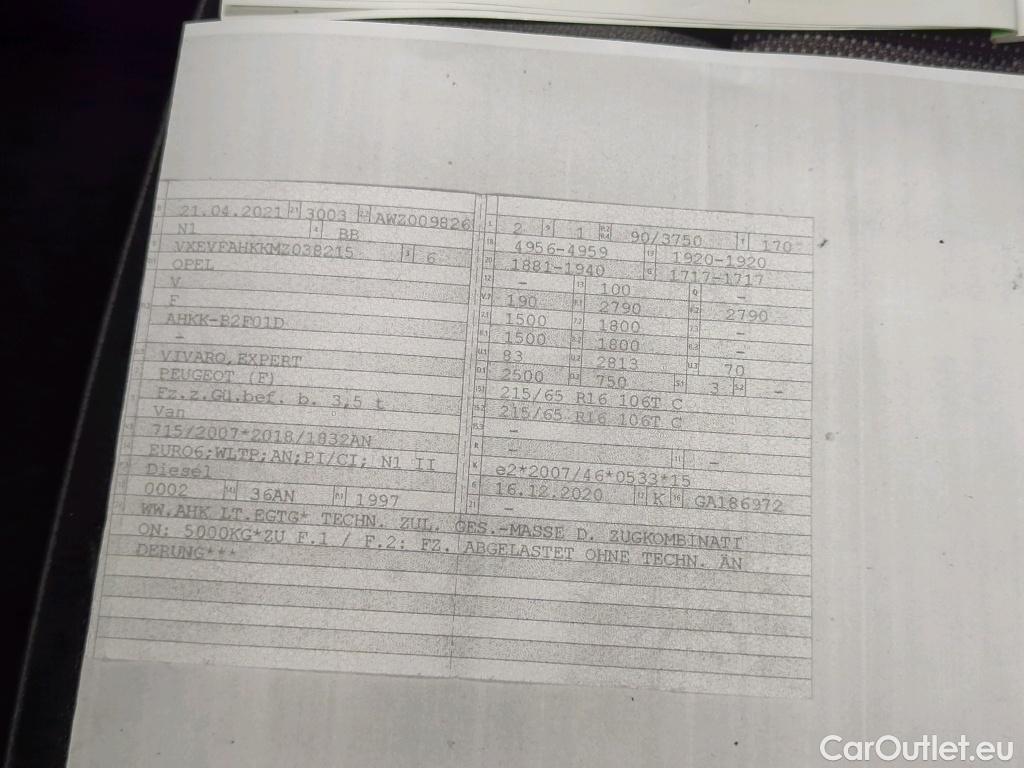 21.04.2021 3003 AWZ009826 2 1 90/3750 170
N1 BB 4956-4959 1920-1920
VXEVFAHKKMZ038215 6 1881-1940 1717-1717
OPEL - 100 -
V 190 2790 2790
F 1500 1800 -
AHKK-B2F01D 1500 1800 -
- 83 2813 70
VIVARO,EXPERT 2500 750 3 -
PEUGEOT (F) 215/65 R16 106T C
Fz.z.Gü.bef. b. 3,5 t 215/65 R16 106T C
Van -
715/2007*2018/1832AN - 
EURO6;WLTP;AN;PI/CI; N1 II e2*2007/46*0533*15
Diesel 16.12.2020 K GA186972
0002 36AN 1997 -
WW.AHK LT.EGTG* TECHN. ZUL. GES.-MASSE D. ZUGKOMBINATI
ON: 5000KG*ZU F.1 / F.2: FZ. ABGELASTET OHNE TECHN. ÄN
DERUNG***
CarOutlet.eu